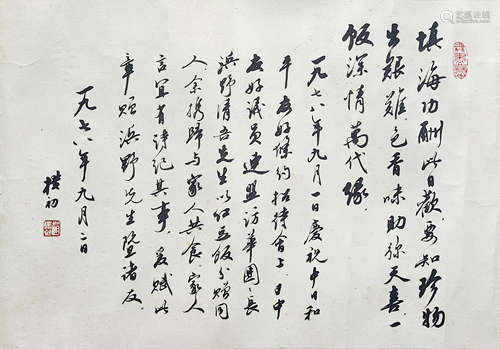 填海功酬此日歡要知珍物
出艱難色香味助弥天喜一
飯深情萬代緣
一九七八年九月一日慶祝中日和
平友好條約招待會上日中
友好議員連盟訪華團團長
浜野清吾先生以红豆飯分赠同
人余携歸与家人共食家人
言宜有詩纪其事爰赋此
章贈浜野先生暨诸友
一九七八年九月二日
樸初